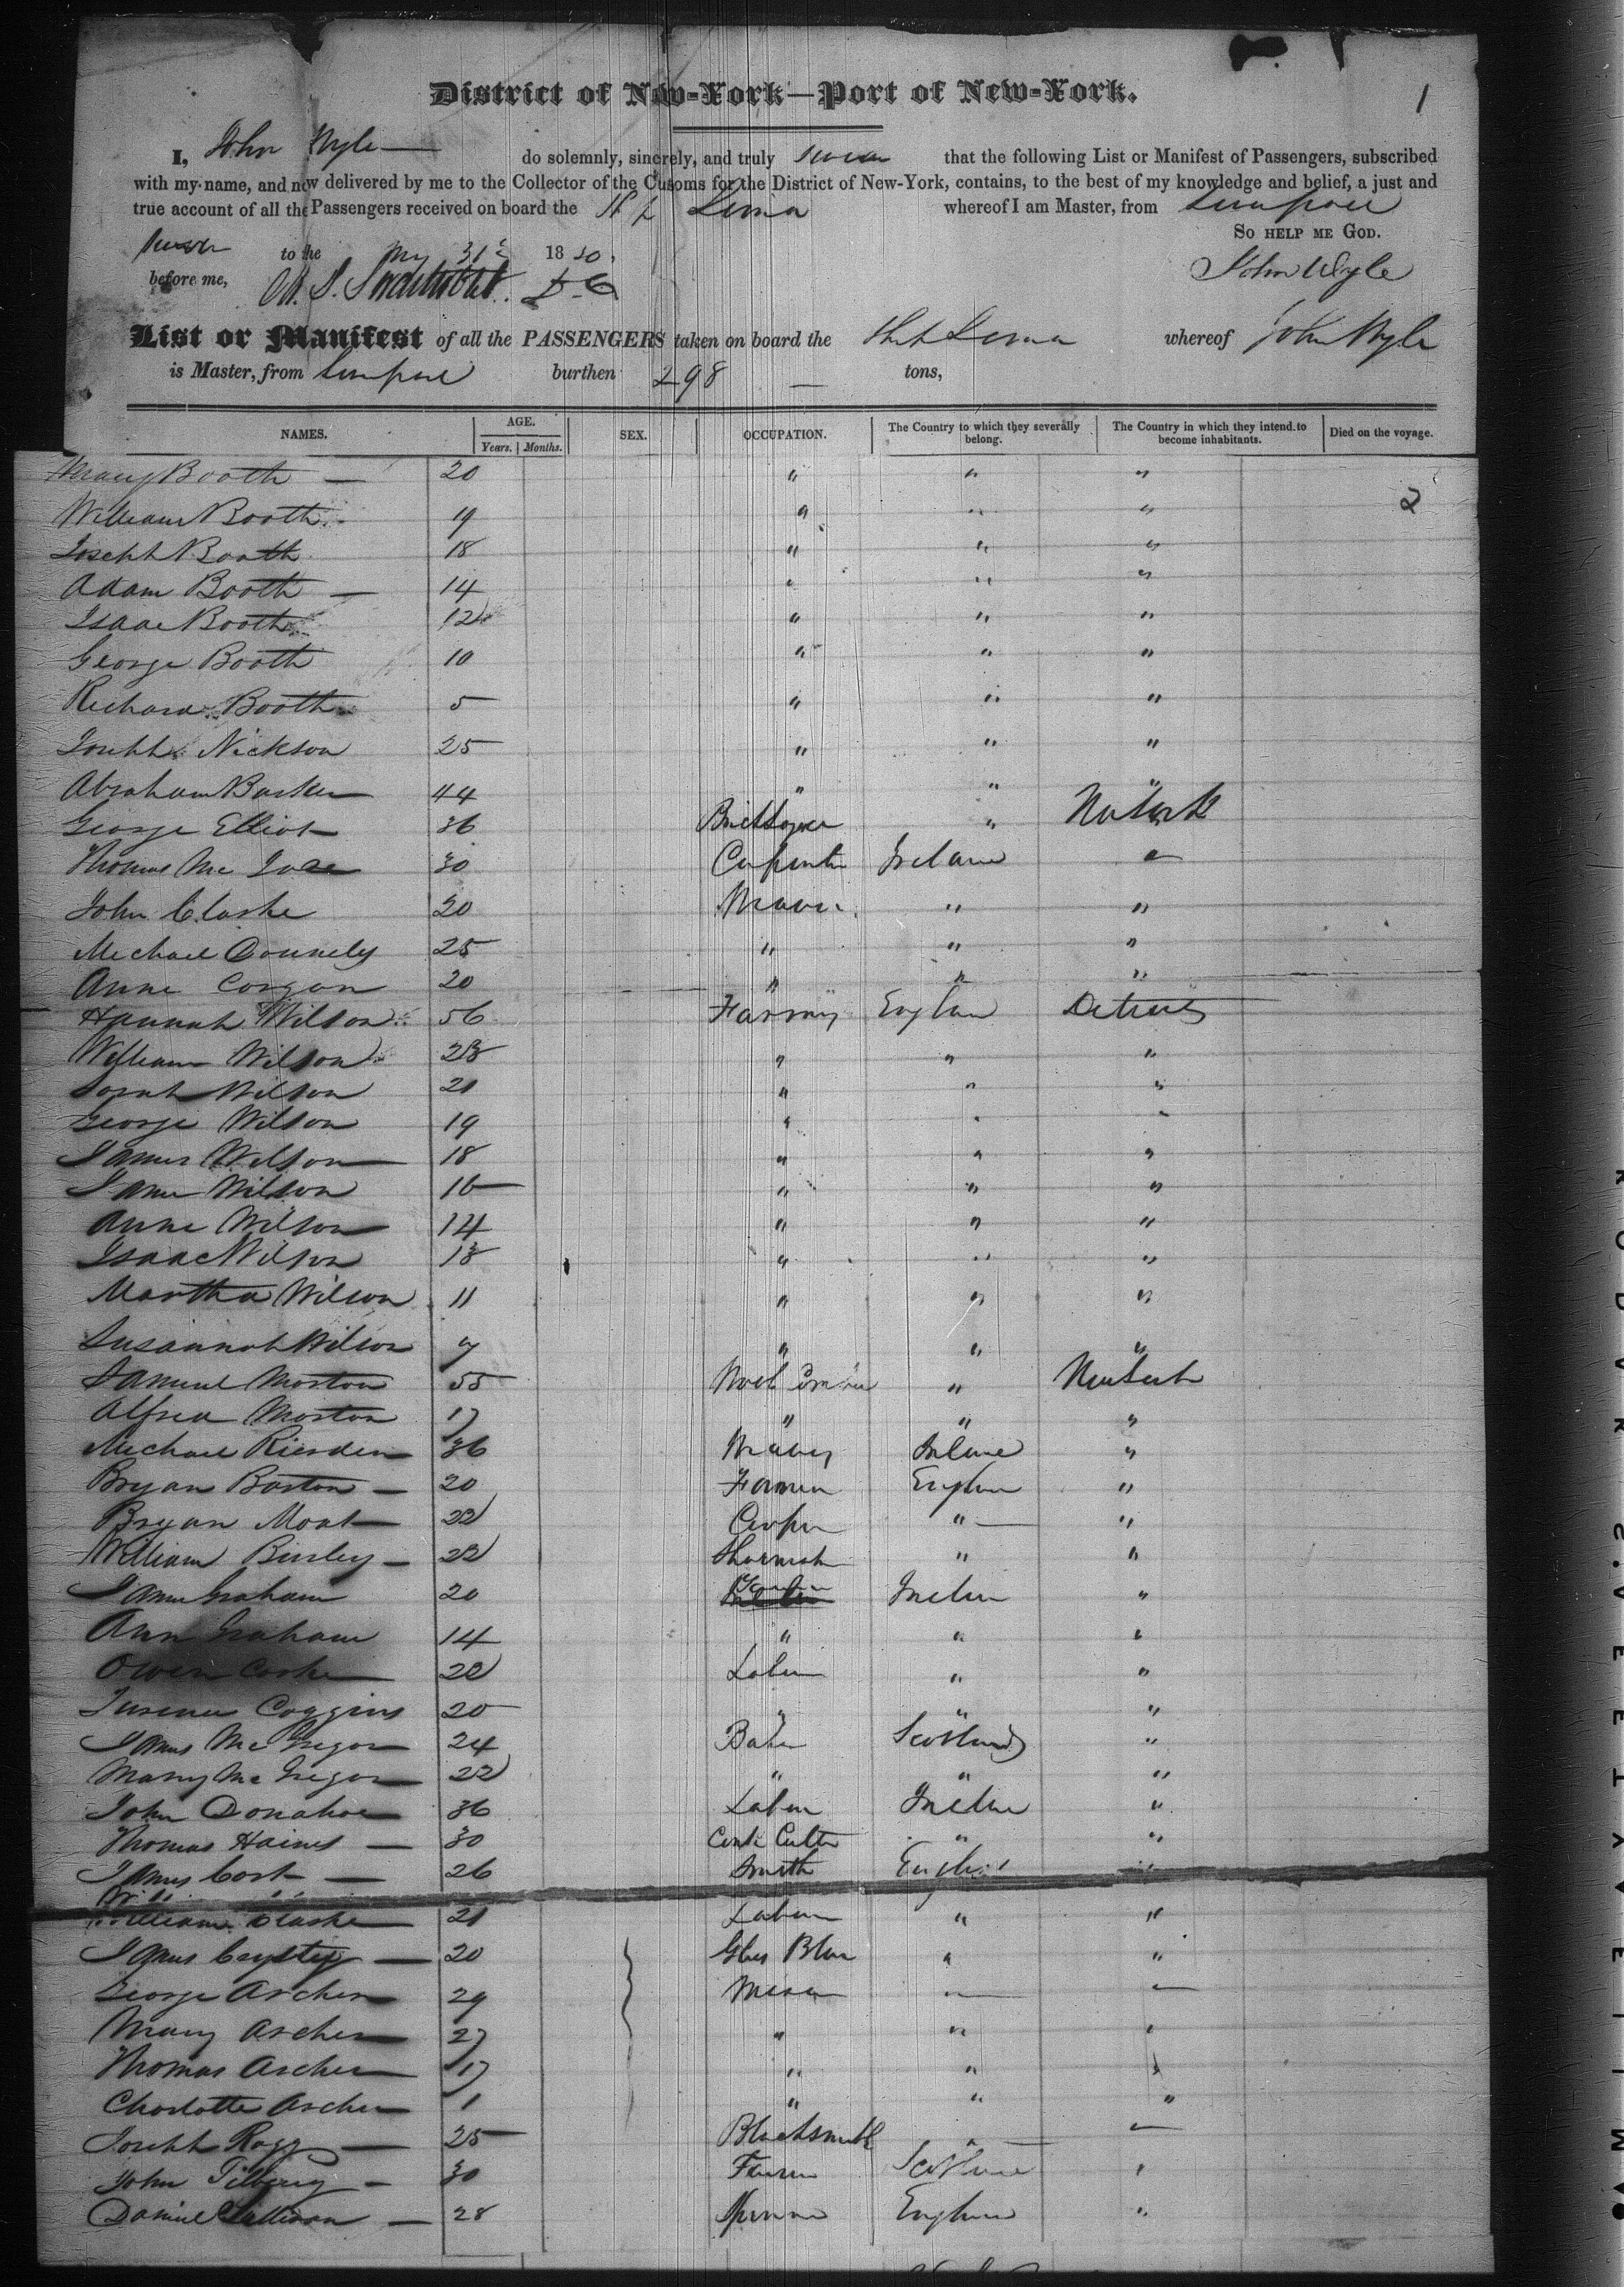 1
District of New-York—Port of New-York.
I, John Wyle do solemnly, sincerely, and truly swear that the following List or Manifest of Passengers, subscribed
with my name, and now delivered by me to the Collector of the Cusoms for the District of New-York, contains, to the best of my knowledge and belief, a just and
true account of all the Passengers received on board the Lima whereof I am Master, from Liverpool
So help me God.
Sworn to the May 31st 1850.
before me, John Wyle
List or Manifest of all the PASSENGERS taken on board the Ship Lima whereof John Wyle
is Master, from Liverpool burthen 298 tons,
NAMES. AGE. Years. Months. SEX. OCCUPATION. The Country to which they severally belong. The Country in which they intend to become inhabitants. Died on the voyage.
Booth 20 " " "
2
William Booth 19 " " "
Joseph Booth 18 " " "
Adam Booth 14 " " "
Isaac Booth 12 " " "
George Booth 10 " " "
Richard Booth 5 " " "
Joseph Nickson 25 " " "
Abraham Barker 44 " " "
George Elliot 36 Bricklayer " New York
Thomas Mc 30 Carpenter Ireland "
John Clarke 20 " "
Michael Connely 25 " " "
Anne Corgan 20 " " "
Hannah Wilson 56 England Detroit
William Wilson 23 " " "
Sarah Wilson 21 " " "
George Wilson 19 " " "
James Wilson 18 " " "
Jane Wilson 16 " " "
Anne Wilson 14 " " "
Isaac Wilson 13 " " "
Martha Wilson 11 " " "
Susannah Wilson 7 " " "
Samuel Morton 55 Wool Comber " New York
Alfred Morton 17 " " "
Michael Riordan 36 Ireland "
Bryan Barton 20 Farmer England "
Bryan Moat 22 Cooper " "
William Binley 22 " "
Jane Graham 20 Ireland "
Ann Graham 14 " " "
Owen Corke 22 Labour " "
Coggins 20 " " "
James McGregor 24 Baker Scotland "
Mary McGregor 22 " " "
John Donahoe 36 Labour Ireland "
Thomas Haines 30 Cutter " "
James Cort 26 Smith England "
William Clarke 21 Labour " "
James 20 Glass Blow " "
George Archer 29 Mason " "
Mary Archer 27 " " "
Thomas Archer 17 " " "
Charlotte Archer 1 " " "
Joseph Ragg 25 Blacksmith " "
John Tilbury 30 Farmer Scotland "
Daniel 28 England "